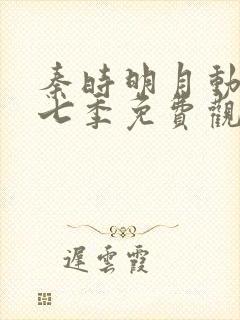 秦時明月動
七季免費觀
遲雲霞